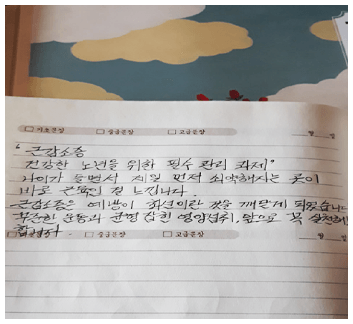 □ 기초문장 □ 중급문장 □ 고급문장 월 일
"근감소증
건강한 노년을 위한 필수 관리 과제"
나이가 들면서 제일 먼저 쇠약해지는 곳이
바로 근육인 걸 느낍니다.
근감소증은 예방이 최선이란 것을 깨닫게 되었습니다
꾸준한 운동과 균형 잡힌 영양섭취, 앞으로 꼭 실천해야
□ 중급문장 □ 고급문장 월 일